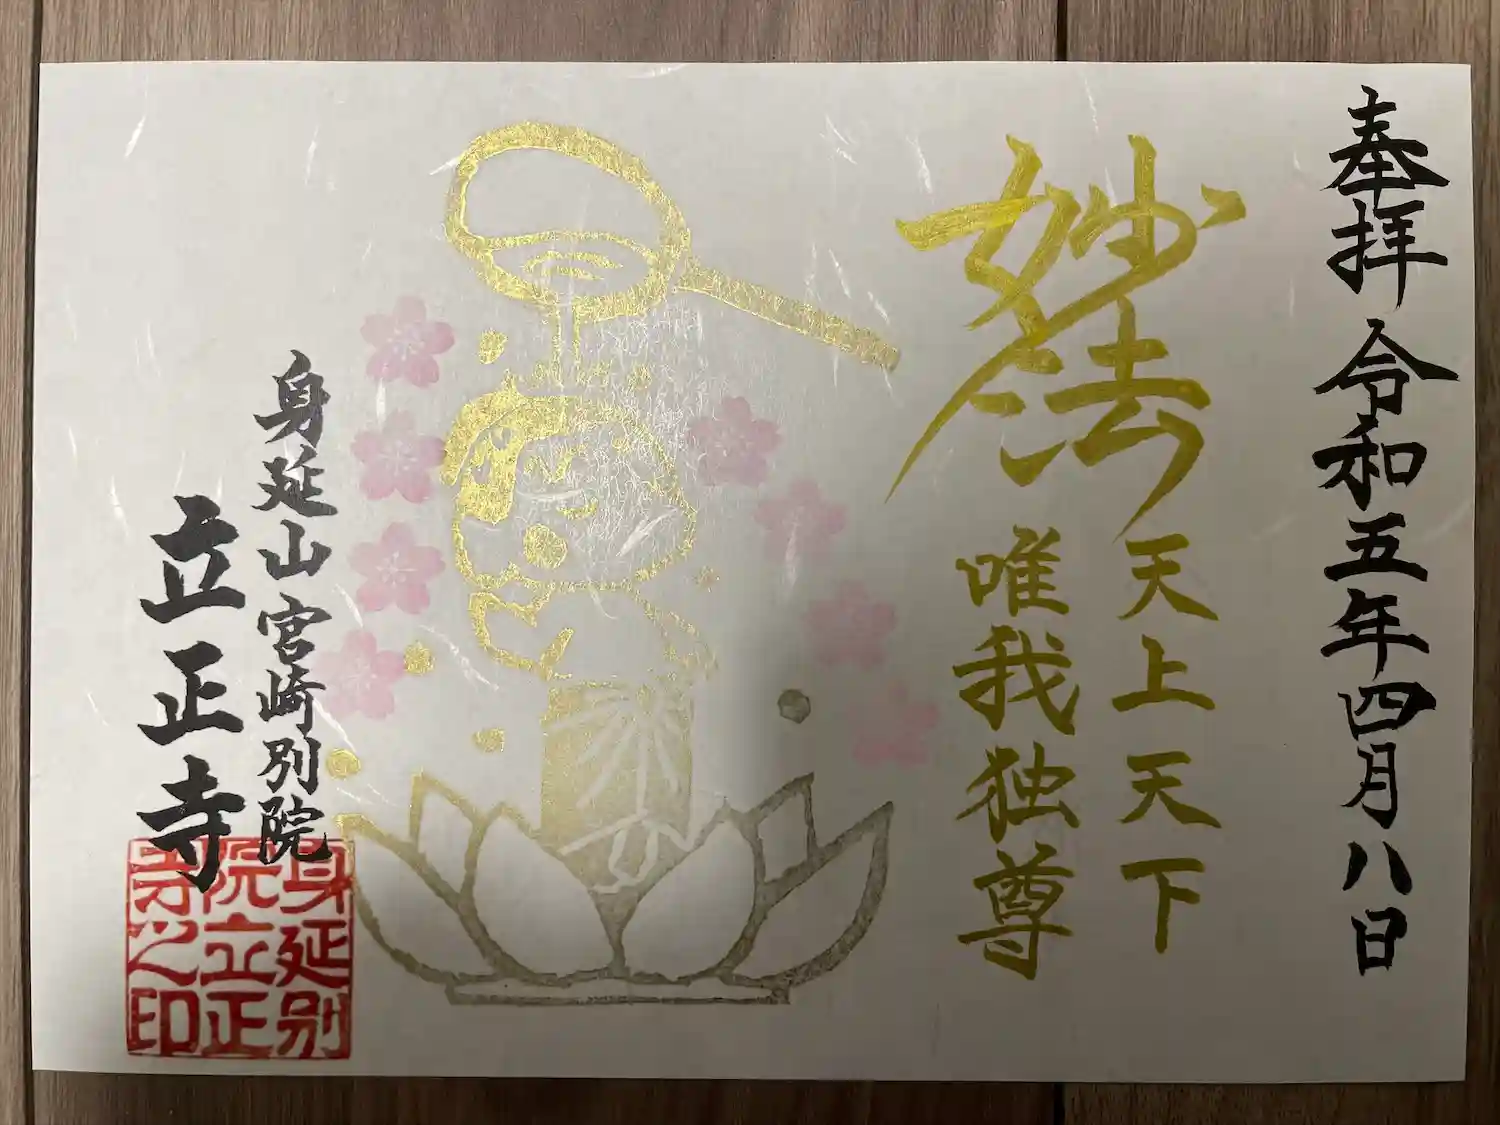 奉拝 令和五年四月八日
妙法
天上天下
唯我独尊
身延山宮崎別院
立正寺
身延別
院立正
寺之印